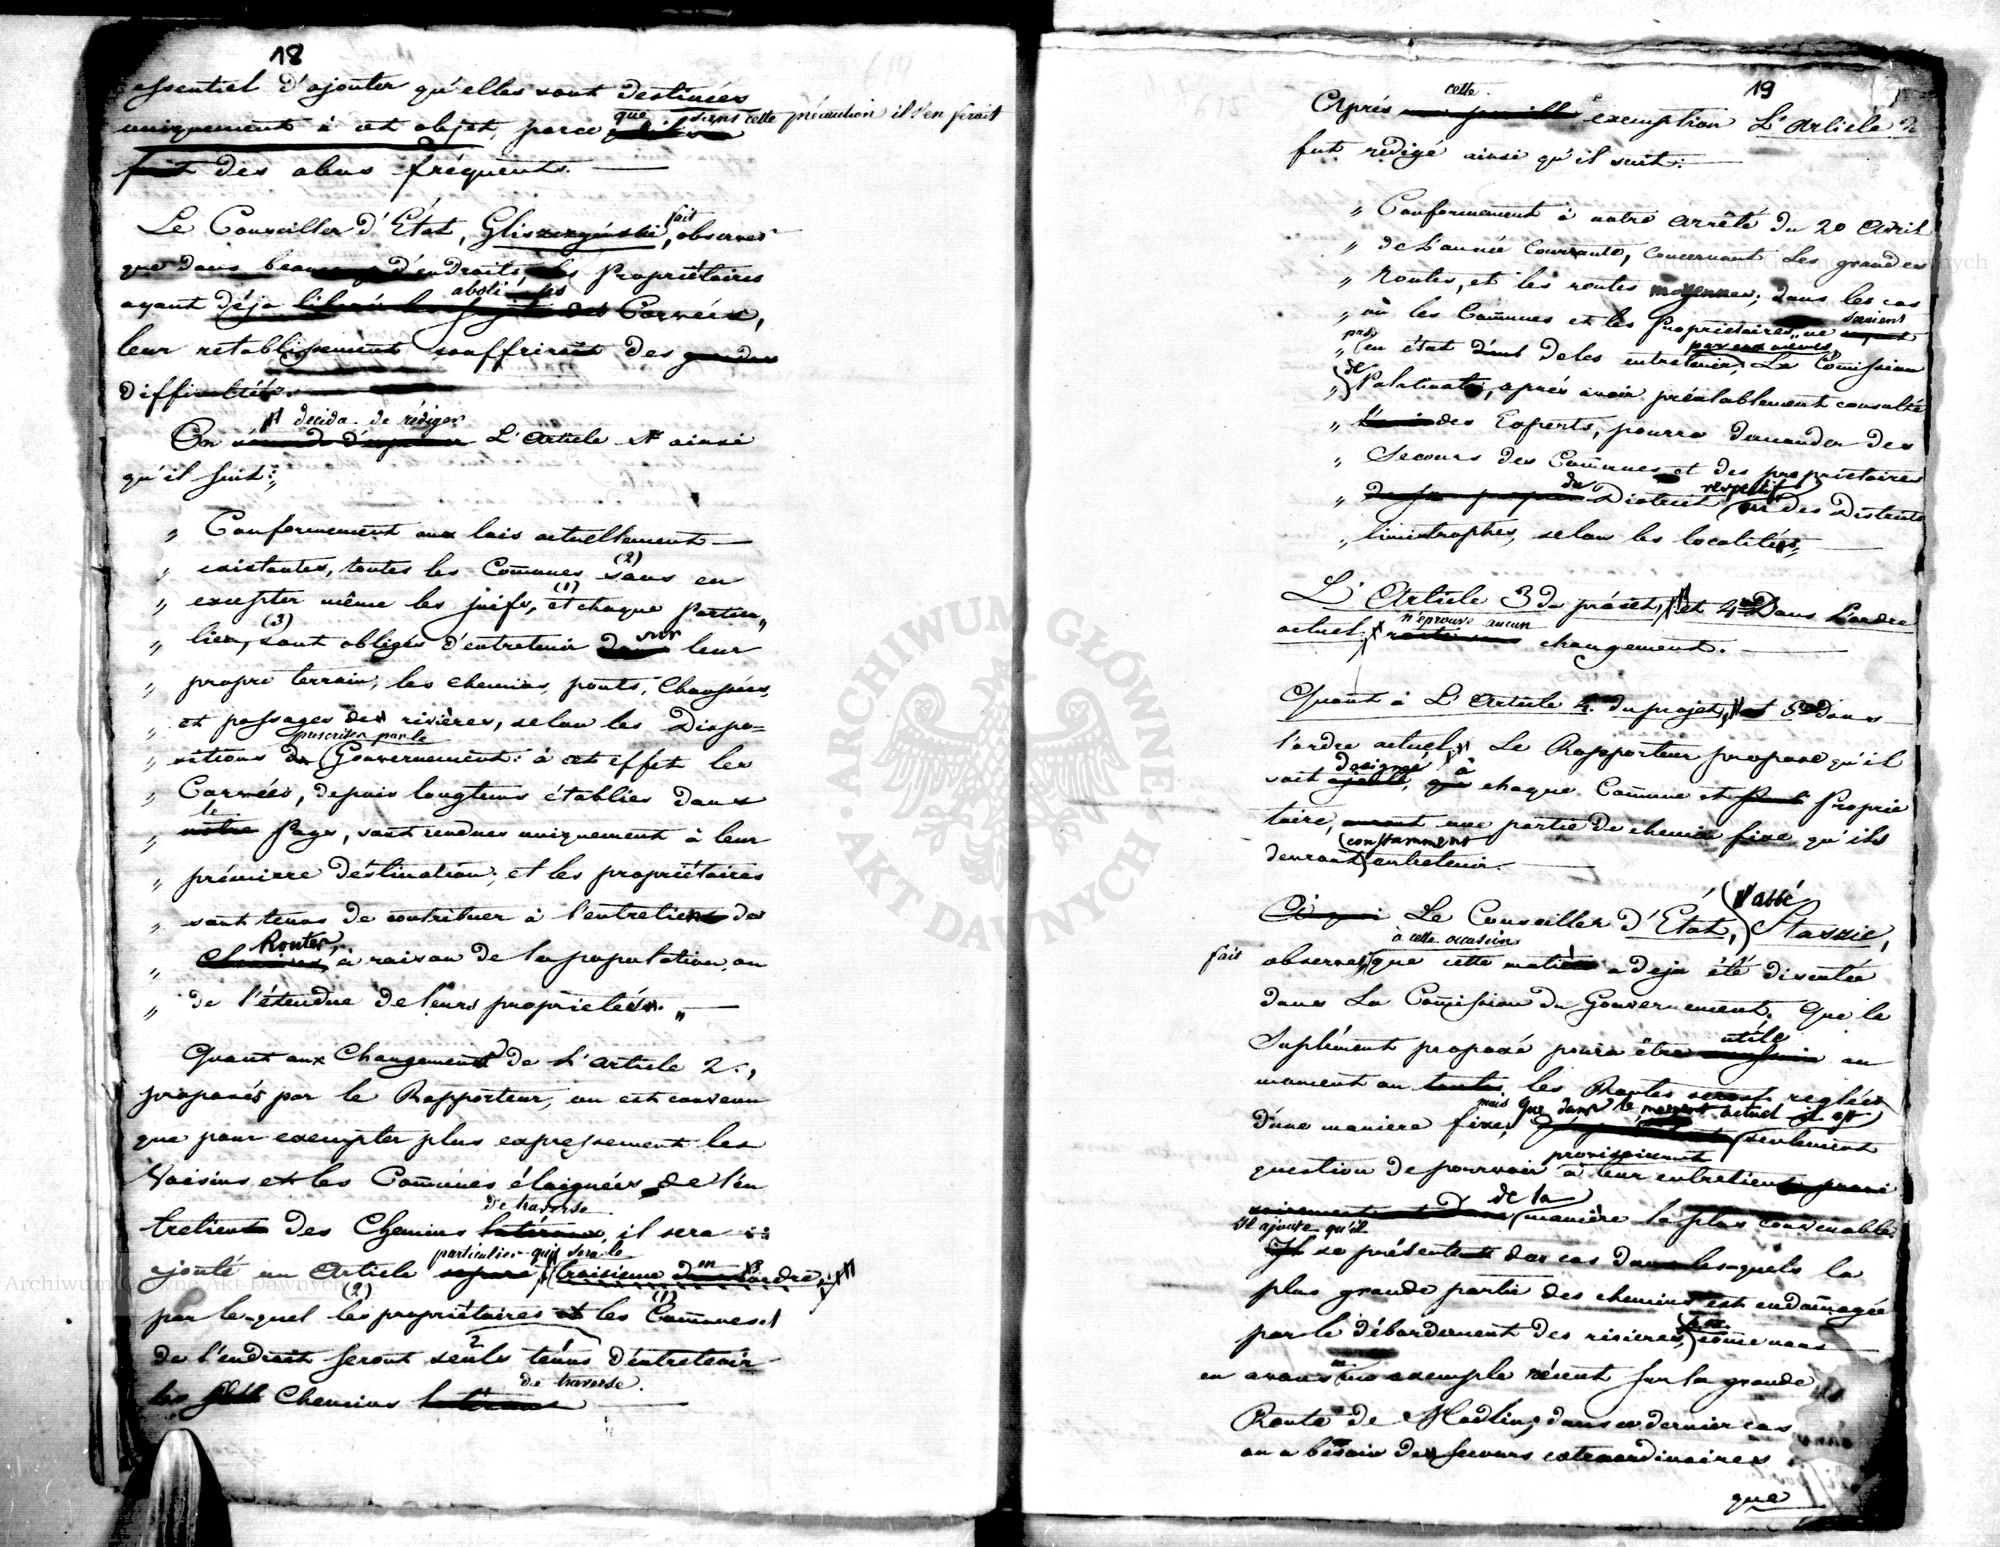 18
essentiel d'ajouter qu'elles sont destinées
uniquement à cet objet, parce que sans cette précaution il s'en ferait
fait des abus fréquents.
Le Conseiller d'État, Gliszczyński, fait observer
que dans beaucoup d'endroits, les Propriétaires
ayant déja aboli les Corvées,
leur retablissement souffrirait des
difficultés.
On décida de rédiger L'Article 1er ainsi
qu'il suit:
„ Conformement aux lois actuellement
„ existantes, toutes les Comunes (2) sans en
„ excepter même les juifs, (1) et chaque Particu„
„ lier, (3) sont obligés d'entretenir sur leur
„ propre terrain, les chemins, ponts, Chaussées,
„ et passages des rivières, selon les Dispo=
„ sitions prescrites par le Gouvernement: à cet effet les
„ Corvées, depuis longtems établies dans
„ le Pays, sont rendues uniquement à leur
„ prémiere déstination, et les propriétaires
„ sont tenus de contribuer à l'entretien des
„ Routes, à raison de la population, ou
„ de l'étendue de leurs proprietés. „
Quant aux Changements de L'Article 2.,
proposés par le Rapporteur, on est convenu
que pour exempter plus expressement les
Voisins et les Comunes éloignées de l'en
tretient des Chemins de traverse, il sera
ajouté un Article particulier qui sera le troisieme dans l'ordre,
par lequel (2) les propriétaires et les (1) Comunes
de l'endroit seront seuls tenus d'entretenir
les Chemins de traverse.
19
Après cette exemption L'Article 2e
fut redigé ainsi qu'il suit:
„ Conformement à notre Arrêté du 20 Avril
„ de l'année Courrante, Concernant les grandes
„ Routes, et les routes moyennes; dans les cas
„ où les Comunes et les Proprietaires, ne seraient
„ pas en état de les entretenir par eux mêmes, La Comission
„ de Palatinat, après avoir préalablement consulté
„ des Experts, pourra demander des
„ Secours des Comunes et des proprietaires
„ du District respectif ou des Districts
„ limitrophes, selon les localités, „
L'Article 3 du projet, et 4me Dans L'ordre
actuel, n'éprouve aucun changement.
Quant à L'Article 4. du projet, et 5me dans
l'ordre actuel, Le Rapporteur propose qu'il
soit designé, à chaque Comune et Proprie
taire, une partie de chemin fixe qu'ils
devront constamment entretenir.
Le Conseiller d'État, l'abbé Staszic,
fait observer, à cette occasion que cette matière a deja été discutée
dans La Comission du Gouvernement. Que le
Suplément proposé poura être utile au
moment ou les Routes seront reglées
d'une maniere fixe, mais que dans le moment actuel il est seulement
question de pourvoir provisoirement à leur entretien
de la manière la plus convenable.
Il ajoute qu'il se présente des cas dans lesquels la
plus grande partie des chemins est endomagée
par le débordement des rivieres, come nous
en avons un exemple récent sur la grande
Route de Modlin, dans ce dernier cas
on a besoin des secours extraordinaires
que
ARCHIWUM GŁÓWNE AKT DAWNYCH
Archiwum Główne Akt Dawnych
Archiwum Główne Akt Dawnych